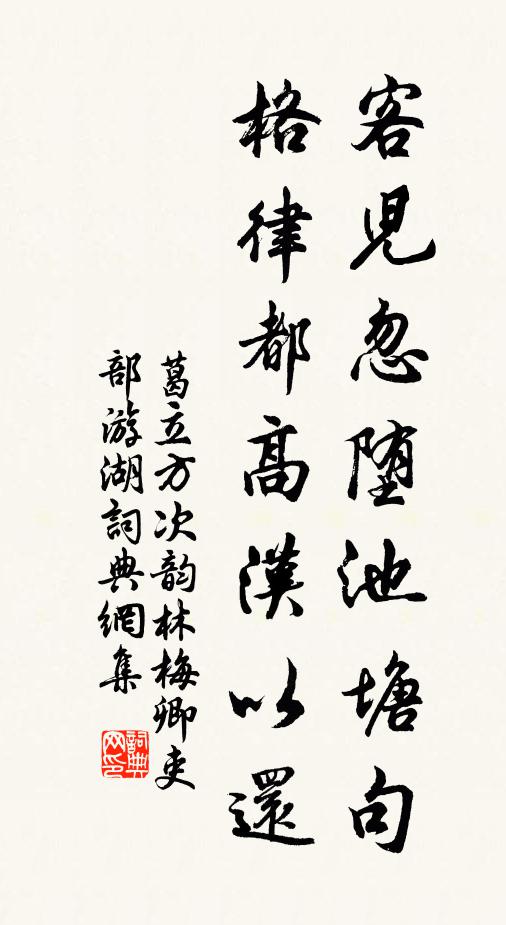 客見忽墮池塘句
格律都高漢以還
葛立方次韵林梅卿吏
部游湖詞典網集
詞典網印